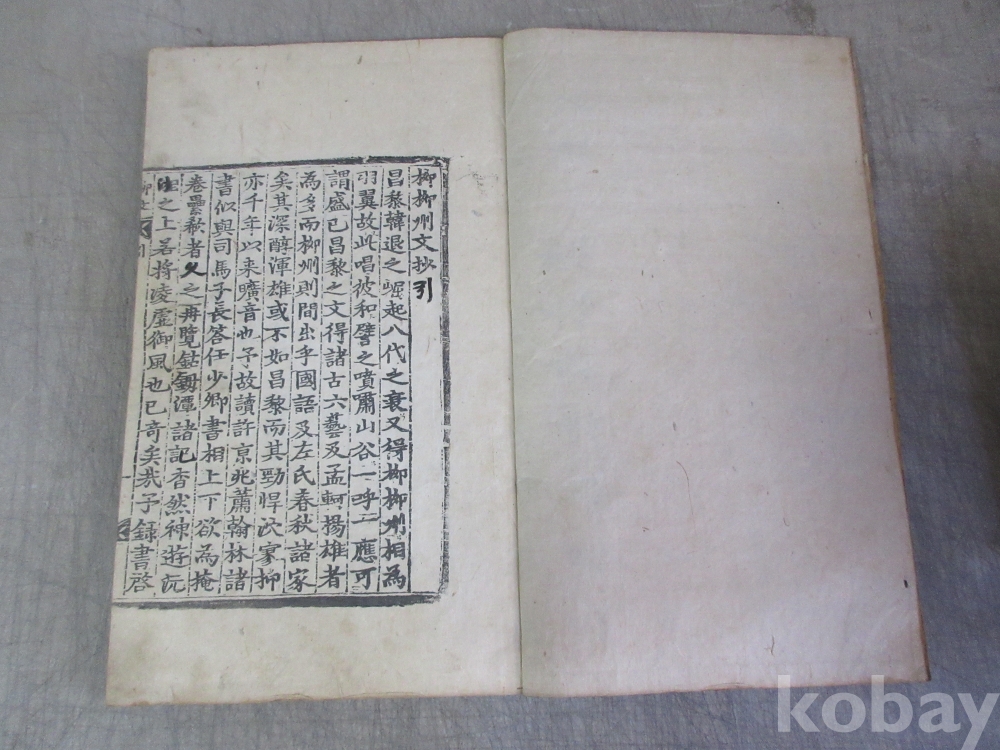 柳柳州文抄引
昌黎韓退之崛起八代之衰又得柳柳州相爲
羽翼故此唱彼和譬之噴嘯山谷一呼一應可
謂盛已昌黎之文得諸古六藝及孟軻揚雄者
爲多而柳州則間出乎國語及左氏春秋諸家
矣其深醇渾雄或不如昌黎而其勁悍沉寥抑
亦千年以来曠音也予故讀許京兆蕭翰林諸
書似與司馬子長答任少卿書相上下欲爲掩
卷壘欷者久之再覽鈷鉧潭諸記杳然神遊沅
之上若將凌虛御風也已奇矣㢤予錄書啓
柳文 引
kobay